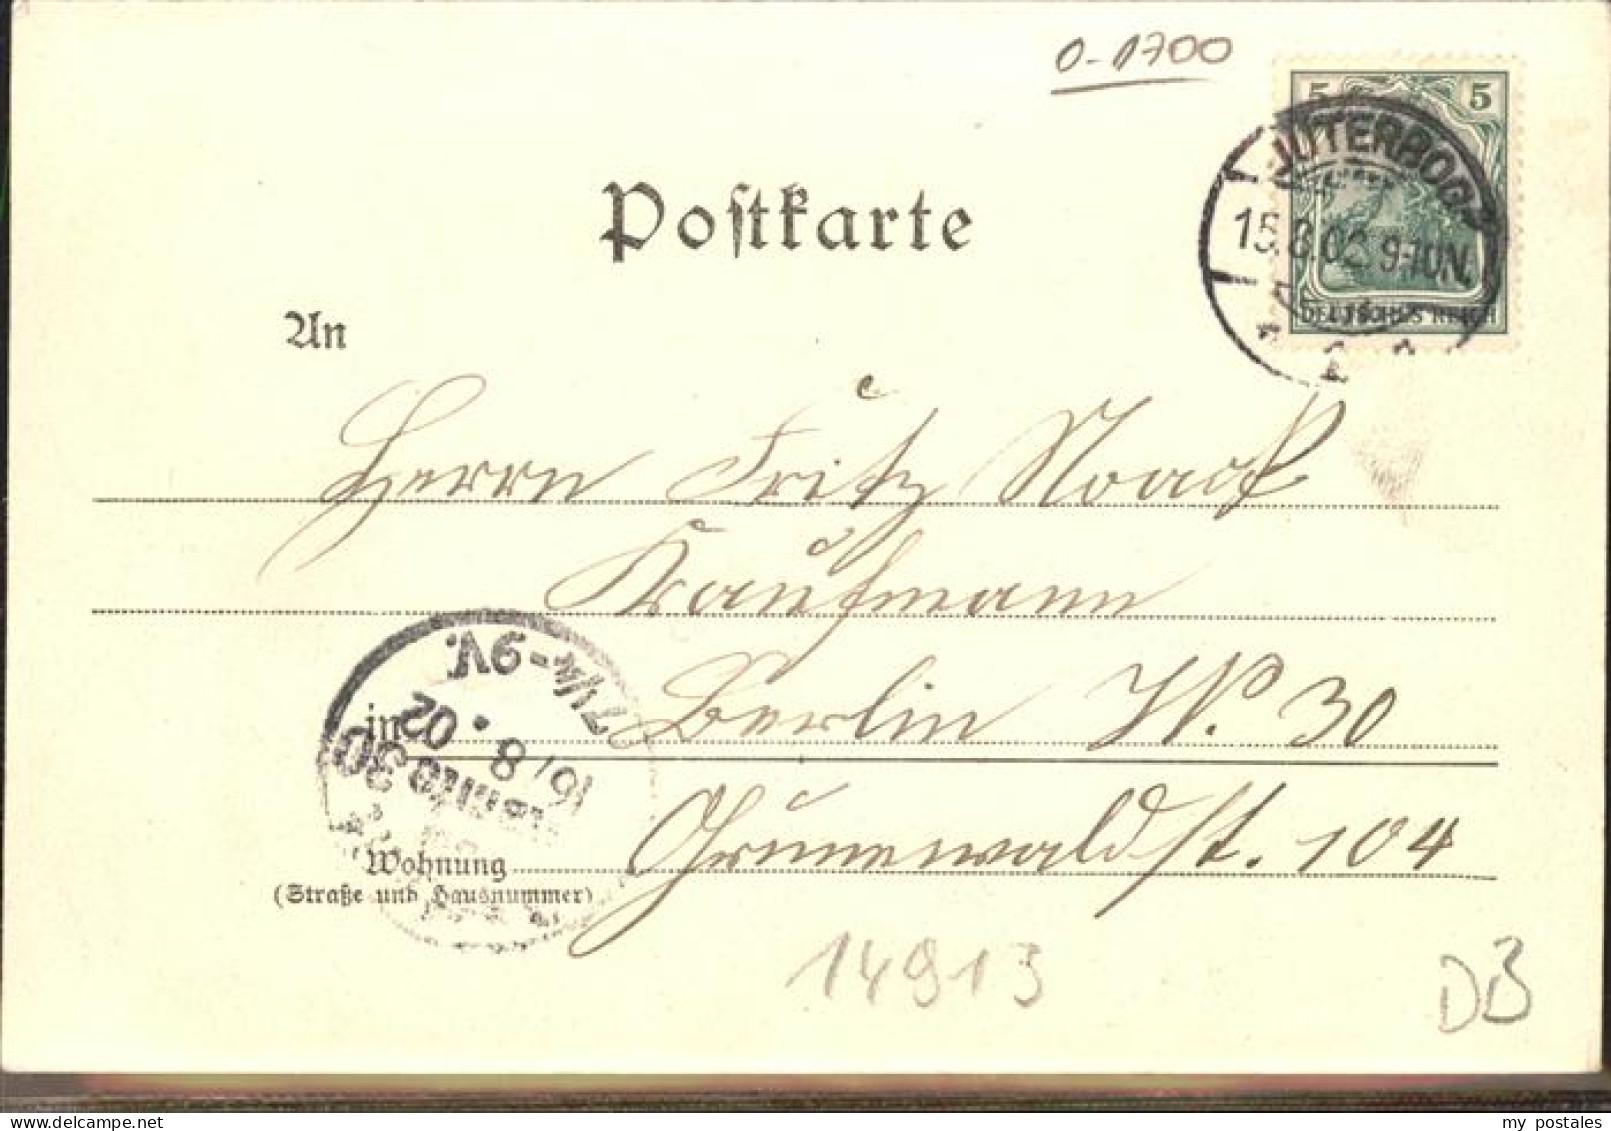 0-1700
5 5
JÜTERBOG
15.8.02 9-10N.
DEUTSCHES REICH
Postkarte
An
Herrn Fritz Noack
Kaufmann
in Berlin W. 30
Grunewaldst. 104
Wohnung
(Straße und Hausnummer)
Berlin 30
16/8.02
-9V.
14913
DB
my postales